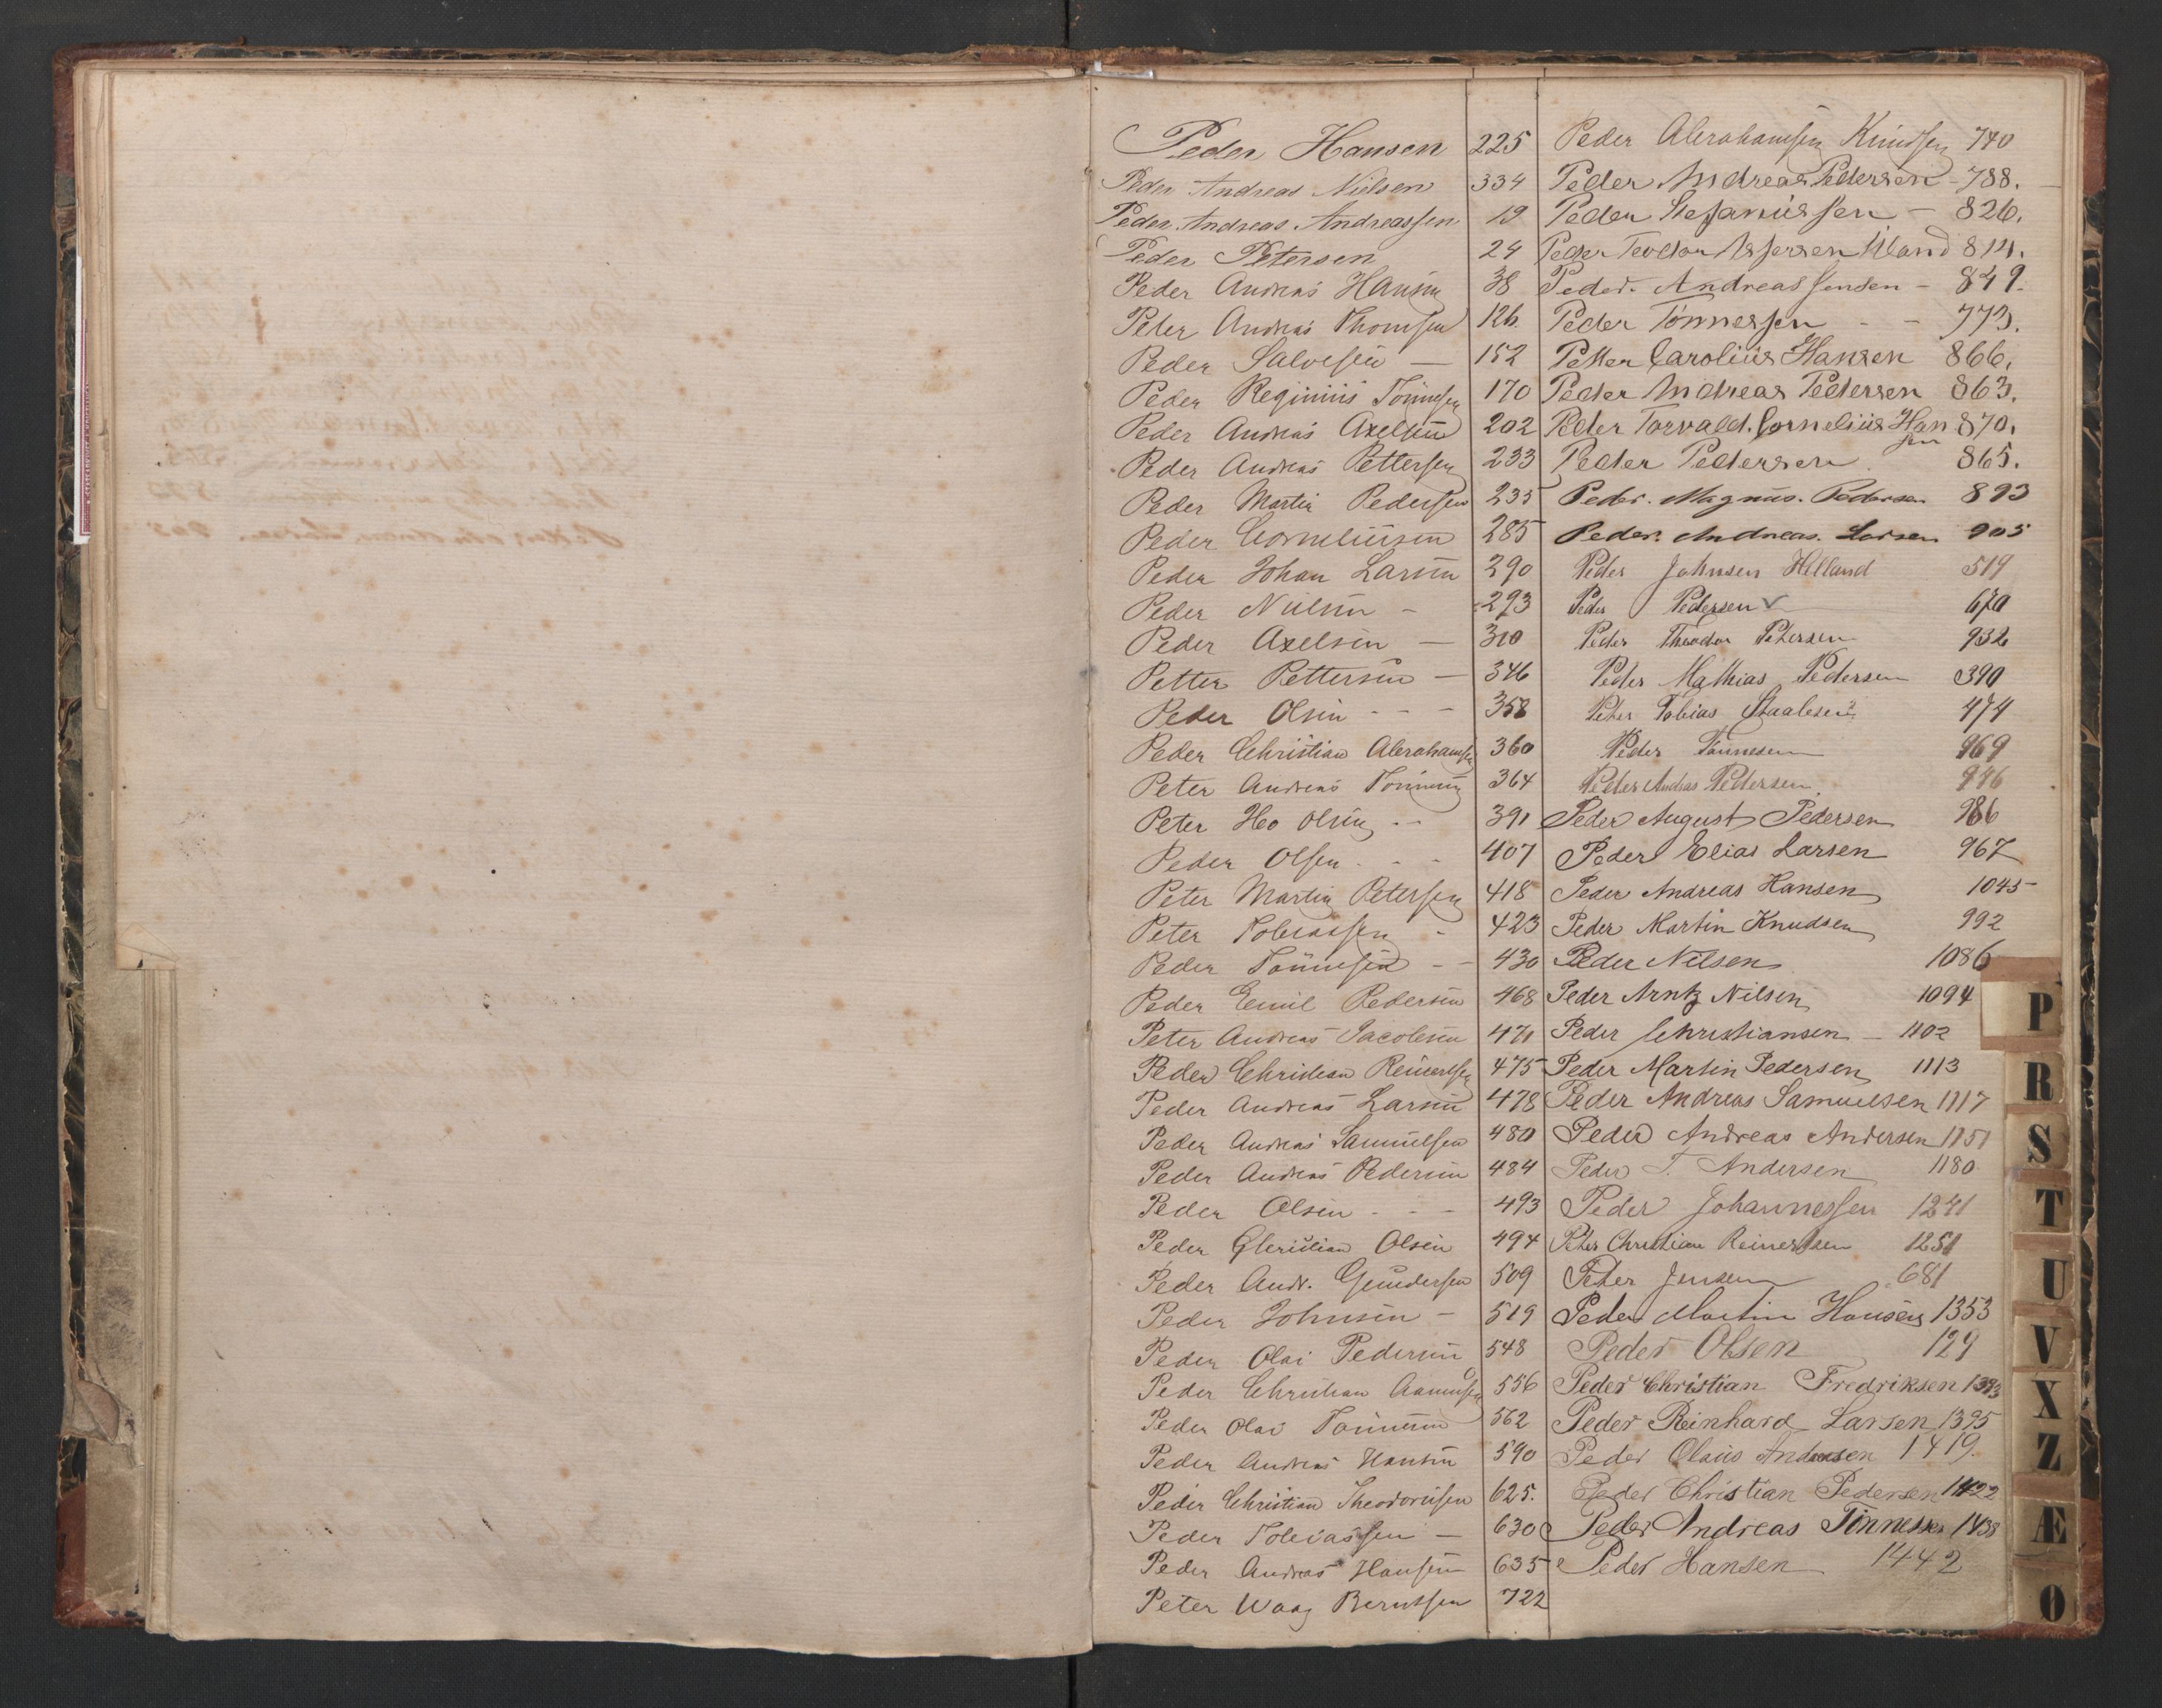 Peder Hansen 225
Peder Andreas Nielsen 334
Peder Andreas Andreassen 19
Peder Petersen 24
Peder Andreas Hansen 38
Peter Andreas Thomsen 126.
Peder Salvesen — 152
Peder Reginius Tönnesen 170
Peder Andreas Axelsen 202
Peder Andreas Pettersen 233
Peder Martin Pedersen 235
Peder Corneliusen 285
Peder Johan Larsen 290
Peder Nielsen - 293
Peder Axelsen — 310
Petter Pettersen — 346
Peder Olsen - - - 358
Peder Christian Abrahamsen 360
Peter Andreas Tönnesen 364
Peter Olsen - - 391
Peder Olsen - - - 407
Peter Martin Petersen 418
Peter Tobiassen - 423
Peder Tönnesen - - 430
Peder Emil Pedersen 468
Peter Andreas Jacobsen 471
Peder Christian Reinertsen 475
Peder Andreas Larsen 478
Peder Andreas Samuelsen 480
Peder Andreas Pedersen 484
Peder Olsen - - - 493
Peder Christian Olsen 494
Peder Andr. Gundersen 509
Peder Johnsen - 519
Peder Olai Pedersen 548
Peder Christian Aamundsen 556
Peder Olai Tönnesen 562
Peder Andreas Hansen 590
Peder Christian Theodorusen 625.
Peder Tobiassen — 630
Peder Andreas Hansen 635
Peter Waag Berntsen 722
Peder Abrahamsen Knudsen 740
Peder Andreas Pedersen - 788.
Peder Stefanussen — 826.
Peder Teodor Asjersen 814.
Peder Andreas Jensen - 849.
Peder Tönnessen - - 773.
Petter Carolius Hansen 866.
Peder Andreas Pedersen 863.
Peder Torvald. Cornelius Han
sen 870.
Peder Pedersen 865.
Peder. Magnus. Pedersen 893
Peder. Andreas. Larsen 905
Peder Johnsen Helland 519
Peder Pedersen 670
Peder Theodor Petersen 932
Peder Mathias Pedersen 390
Peter Tobias Staalesen 474
Peder Tönnesen 969
Peder Andreas Pedersen 976
Peder August Pedersen 986
Peder Elias Larsen 967
Peder Andreas Hansen 1045
Peder Martin Knudsen 992
Peder Nilsen 1086
Peder Arntz Nilsen 1094
Peder Christiansen — 1102
Peder Martin Pedersen 1113
Peder Andreas Samuelsen 1117
Peder Andreas Andersen 1151
Peder T. Andersen 1180
Peder Johannessen 1241
Peter Christian Reinertsen 1251
Peter Jensen 681
Peder Martin Hansen 1353
Peder Olsen 129
Peder Christian Fredriksen 1393
Peder Reinhard Larsen 1395
Peder Olaus Andersen 1419.
Peder Christian Pedersen 1422
Peder Andreas Tönnessen 1438
Peder Hansen 1442
P
R
S
T
U
V
X
Z
Æ
Ø